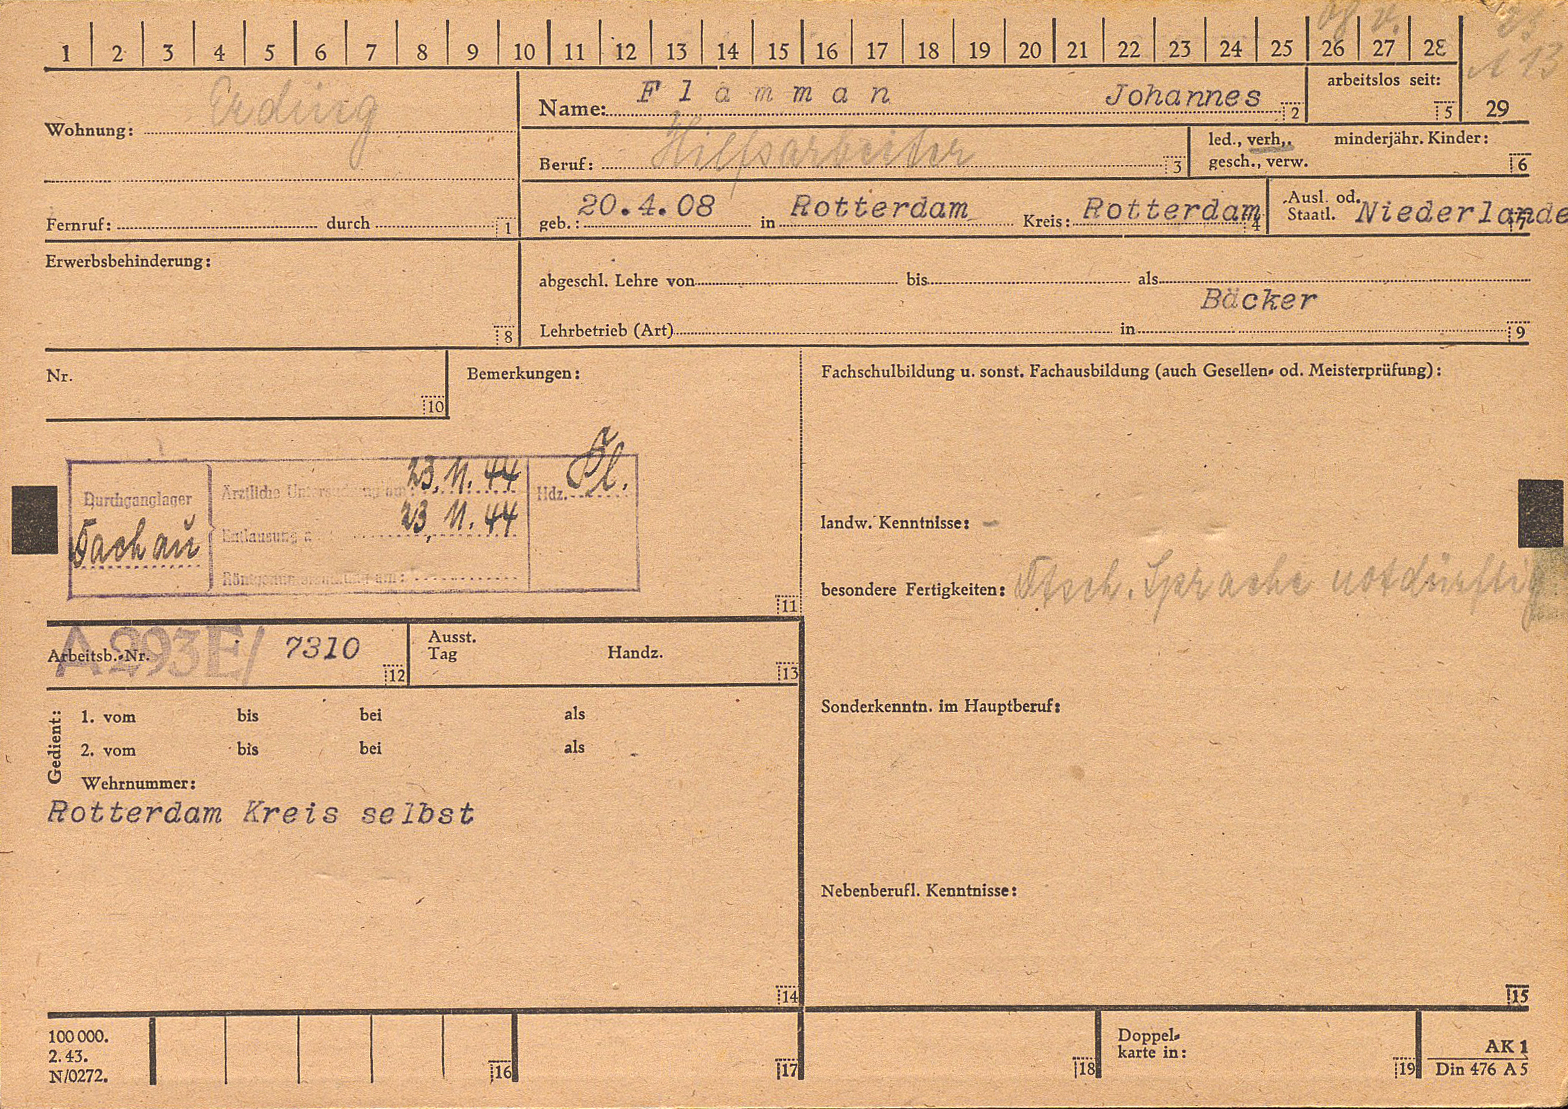 1 2 3 4 5 6 7 8 9 10 11 12 13 14 15 16 17 18 19 20 21 22 23 24 25 26 27 28
A 13
29
Wohnung: Erding
Name: Flamman Johannes 2
arbeitslos seit: 5
Beruf: Hilfsarbeiter 3
led., verh., minderjähr. Kinder:
gesch., verw. 6
Fernruf: durch 1
geb.: 20.4.08 in Rotterdam Kreis: Rotterdam 4
Ausl. od.
Staatl. Niederlande 7
Erwerbsbehinderung: 8
abgeschl. Lehre von bis als
Bäcker
Lehrbetrieb (Art) in 9
Nr. 10
Bemerkungen:
Fachschulbildung u. sonst. Fachausbildung (auch Gesellen- od. Meisterprüfung):
Durchganglager
Dachau
Ärztliche Untersuchung am: 23.11.44
Entlausung am 23.11.44
Röntgenuntersuchung am:
Hdz. Fl.
11
landw. Kenntnisse: -
besondere Fertigkeiten: Dtsch. Sprache notdürftig
Arbeitsb.-Nr. A 293E/ 7310 12
Ausst.
Tag Handz. 13
Sonderkenntn. im Hauptberuf:
Gedient:
1. vom bis bei als
2. vom bis bei als
Wehrnummer:
Rotterdam Kreis selbst
14
Nebenberufl. Kenntnisse:
15
100 000.
2. 43.
N/0272.
16 17 18
Doppel-
karte in: 19
AK 1
Din 476 A 5